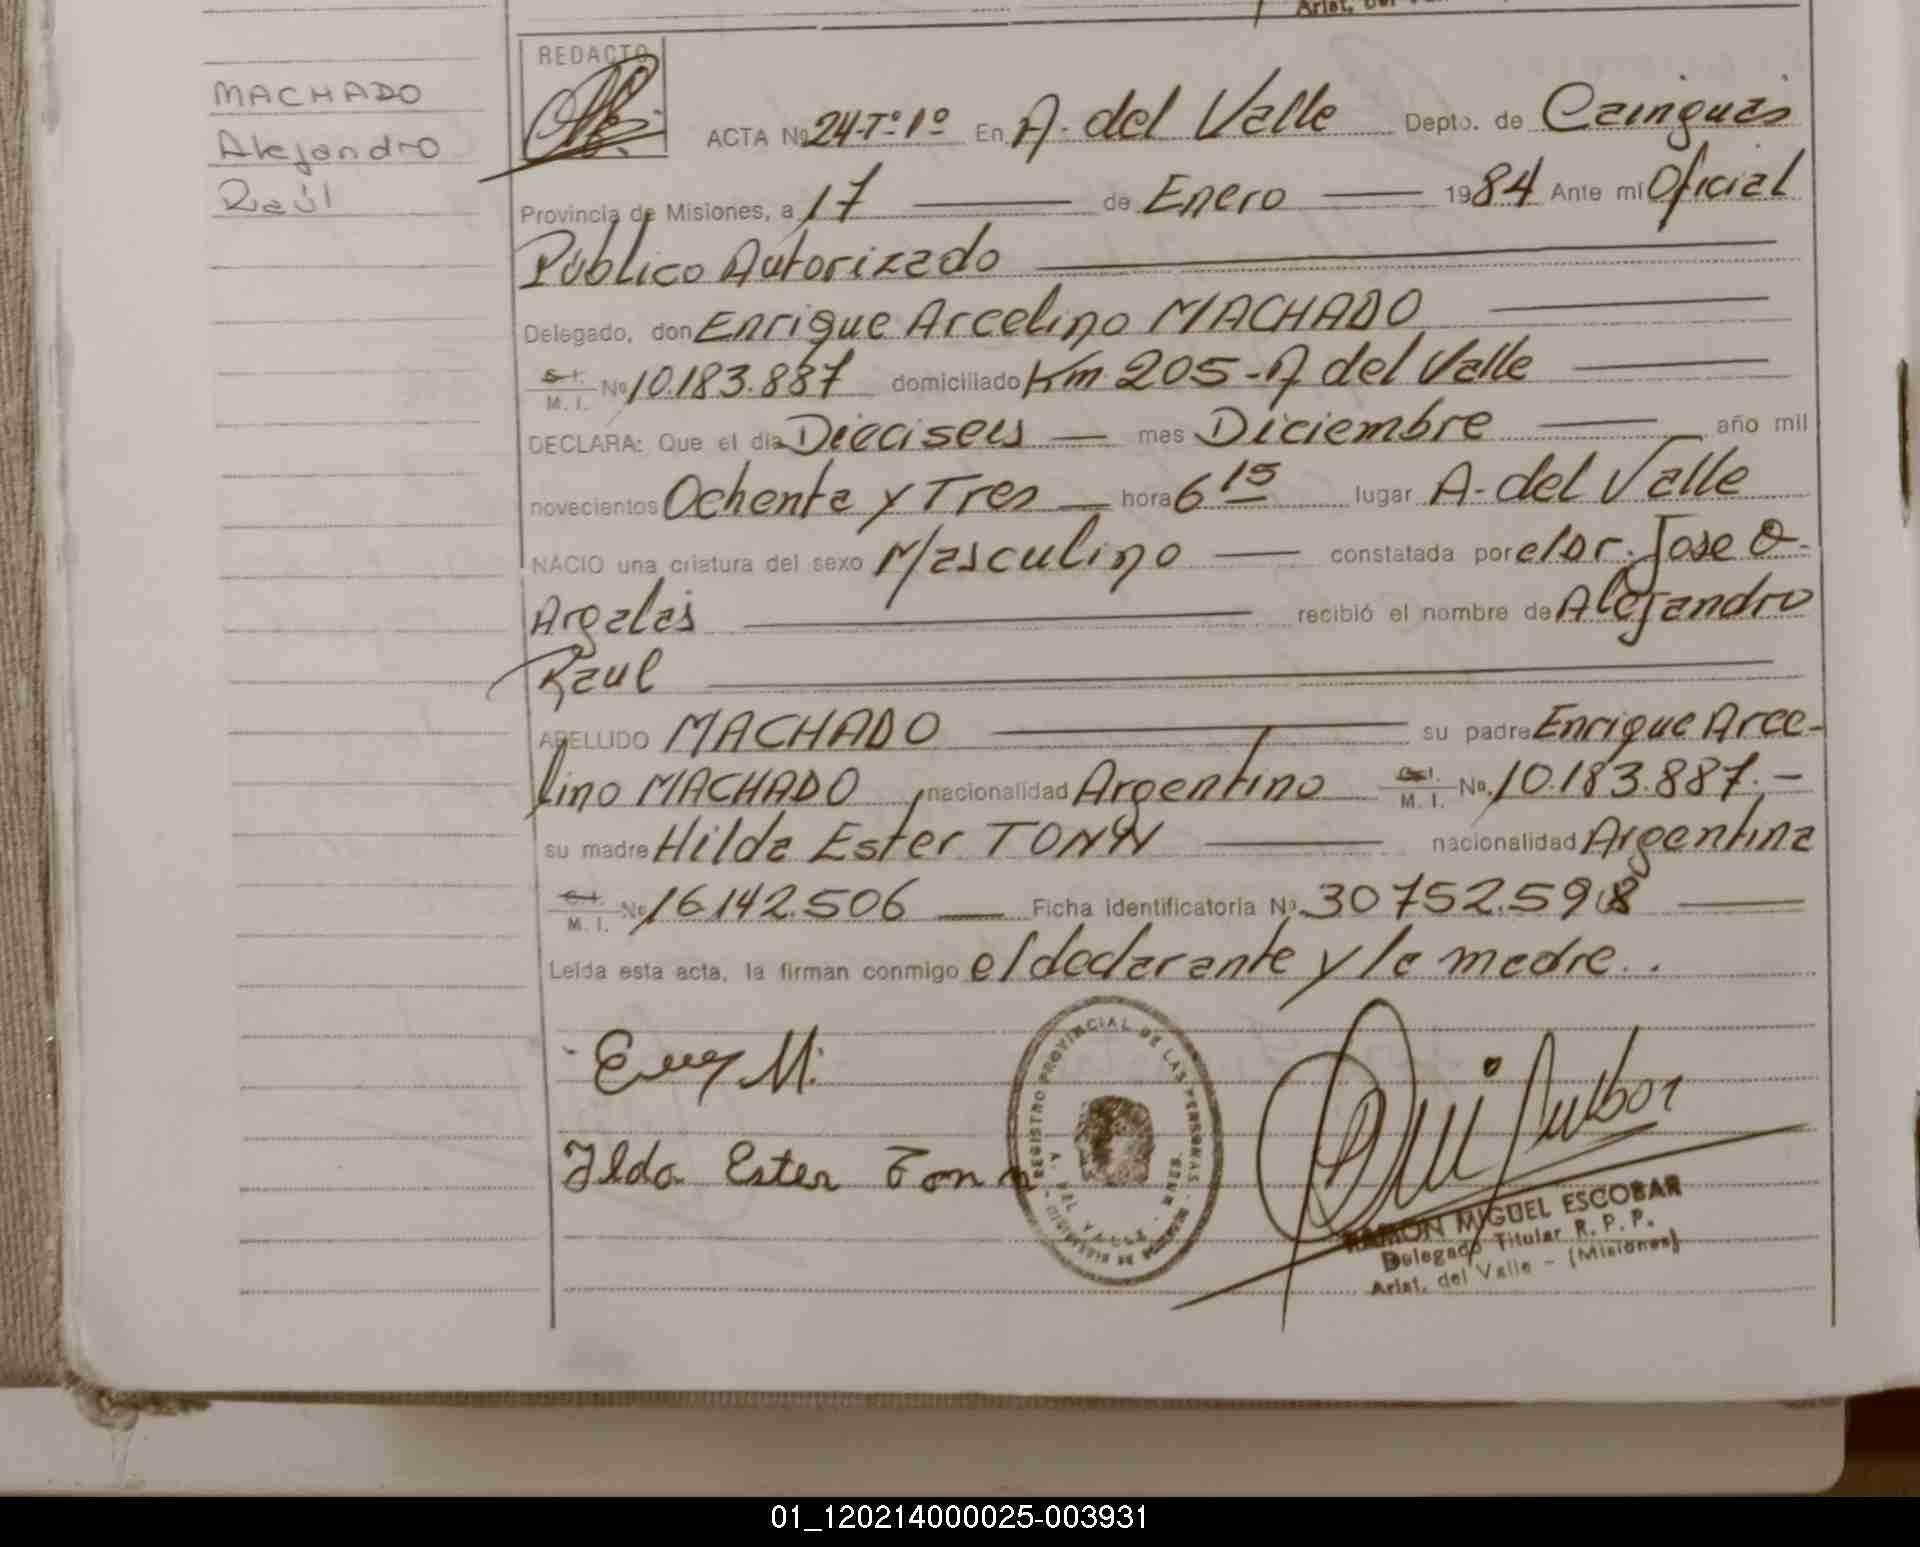 Arist. del
REDACTO
MACHADO
Alejandro
Raúl
ACTA Nº 24-Tº 1º En A. del Valle Depto. de Cainguás
Provincia de Misiones, a 17 de Enero 1984 Ante mi Oficial
Público Autorizado
Delegado, don Enrique Arcelino MACHADO
M. I. Nº 10.183.887 domiciliado Km 205 - A del Valle
DECLARA: Que el día Dieciseis mes Diciembre año mil
novecientos Ochenta y Tres hora 6 15 lugar A. del Valle
NACIO una criatura del sexo Masculino constatada por el Dr. Jose O.
Argalas recibió el nombre de Alejandro
Raul
APELLIDO MACHADO su padre Enrique Arce-
lino MACHADO nacionalidad Argentino M. I. Nº 10.183.887.-
su madre Hilda Ester TONN nacionalidad Argentina
M. I. Nº 16.142.506 Ficha identificatoria Nº 30752.598
Leída esta acta, la firman conmigo el declarante y la madre..
Ilda Ester Tonn
REGISTRO PROVINCIAL DE LAS PERSONAS
A. DEL VALLE
RAMON MIGUEL ESCOBAR
Delegado Titular R. P. P.
Arist. del Valle - (Misiones)
01_120214000025-003931